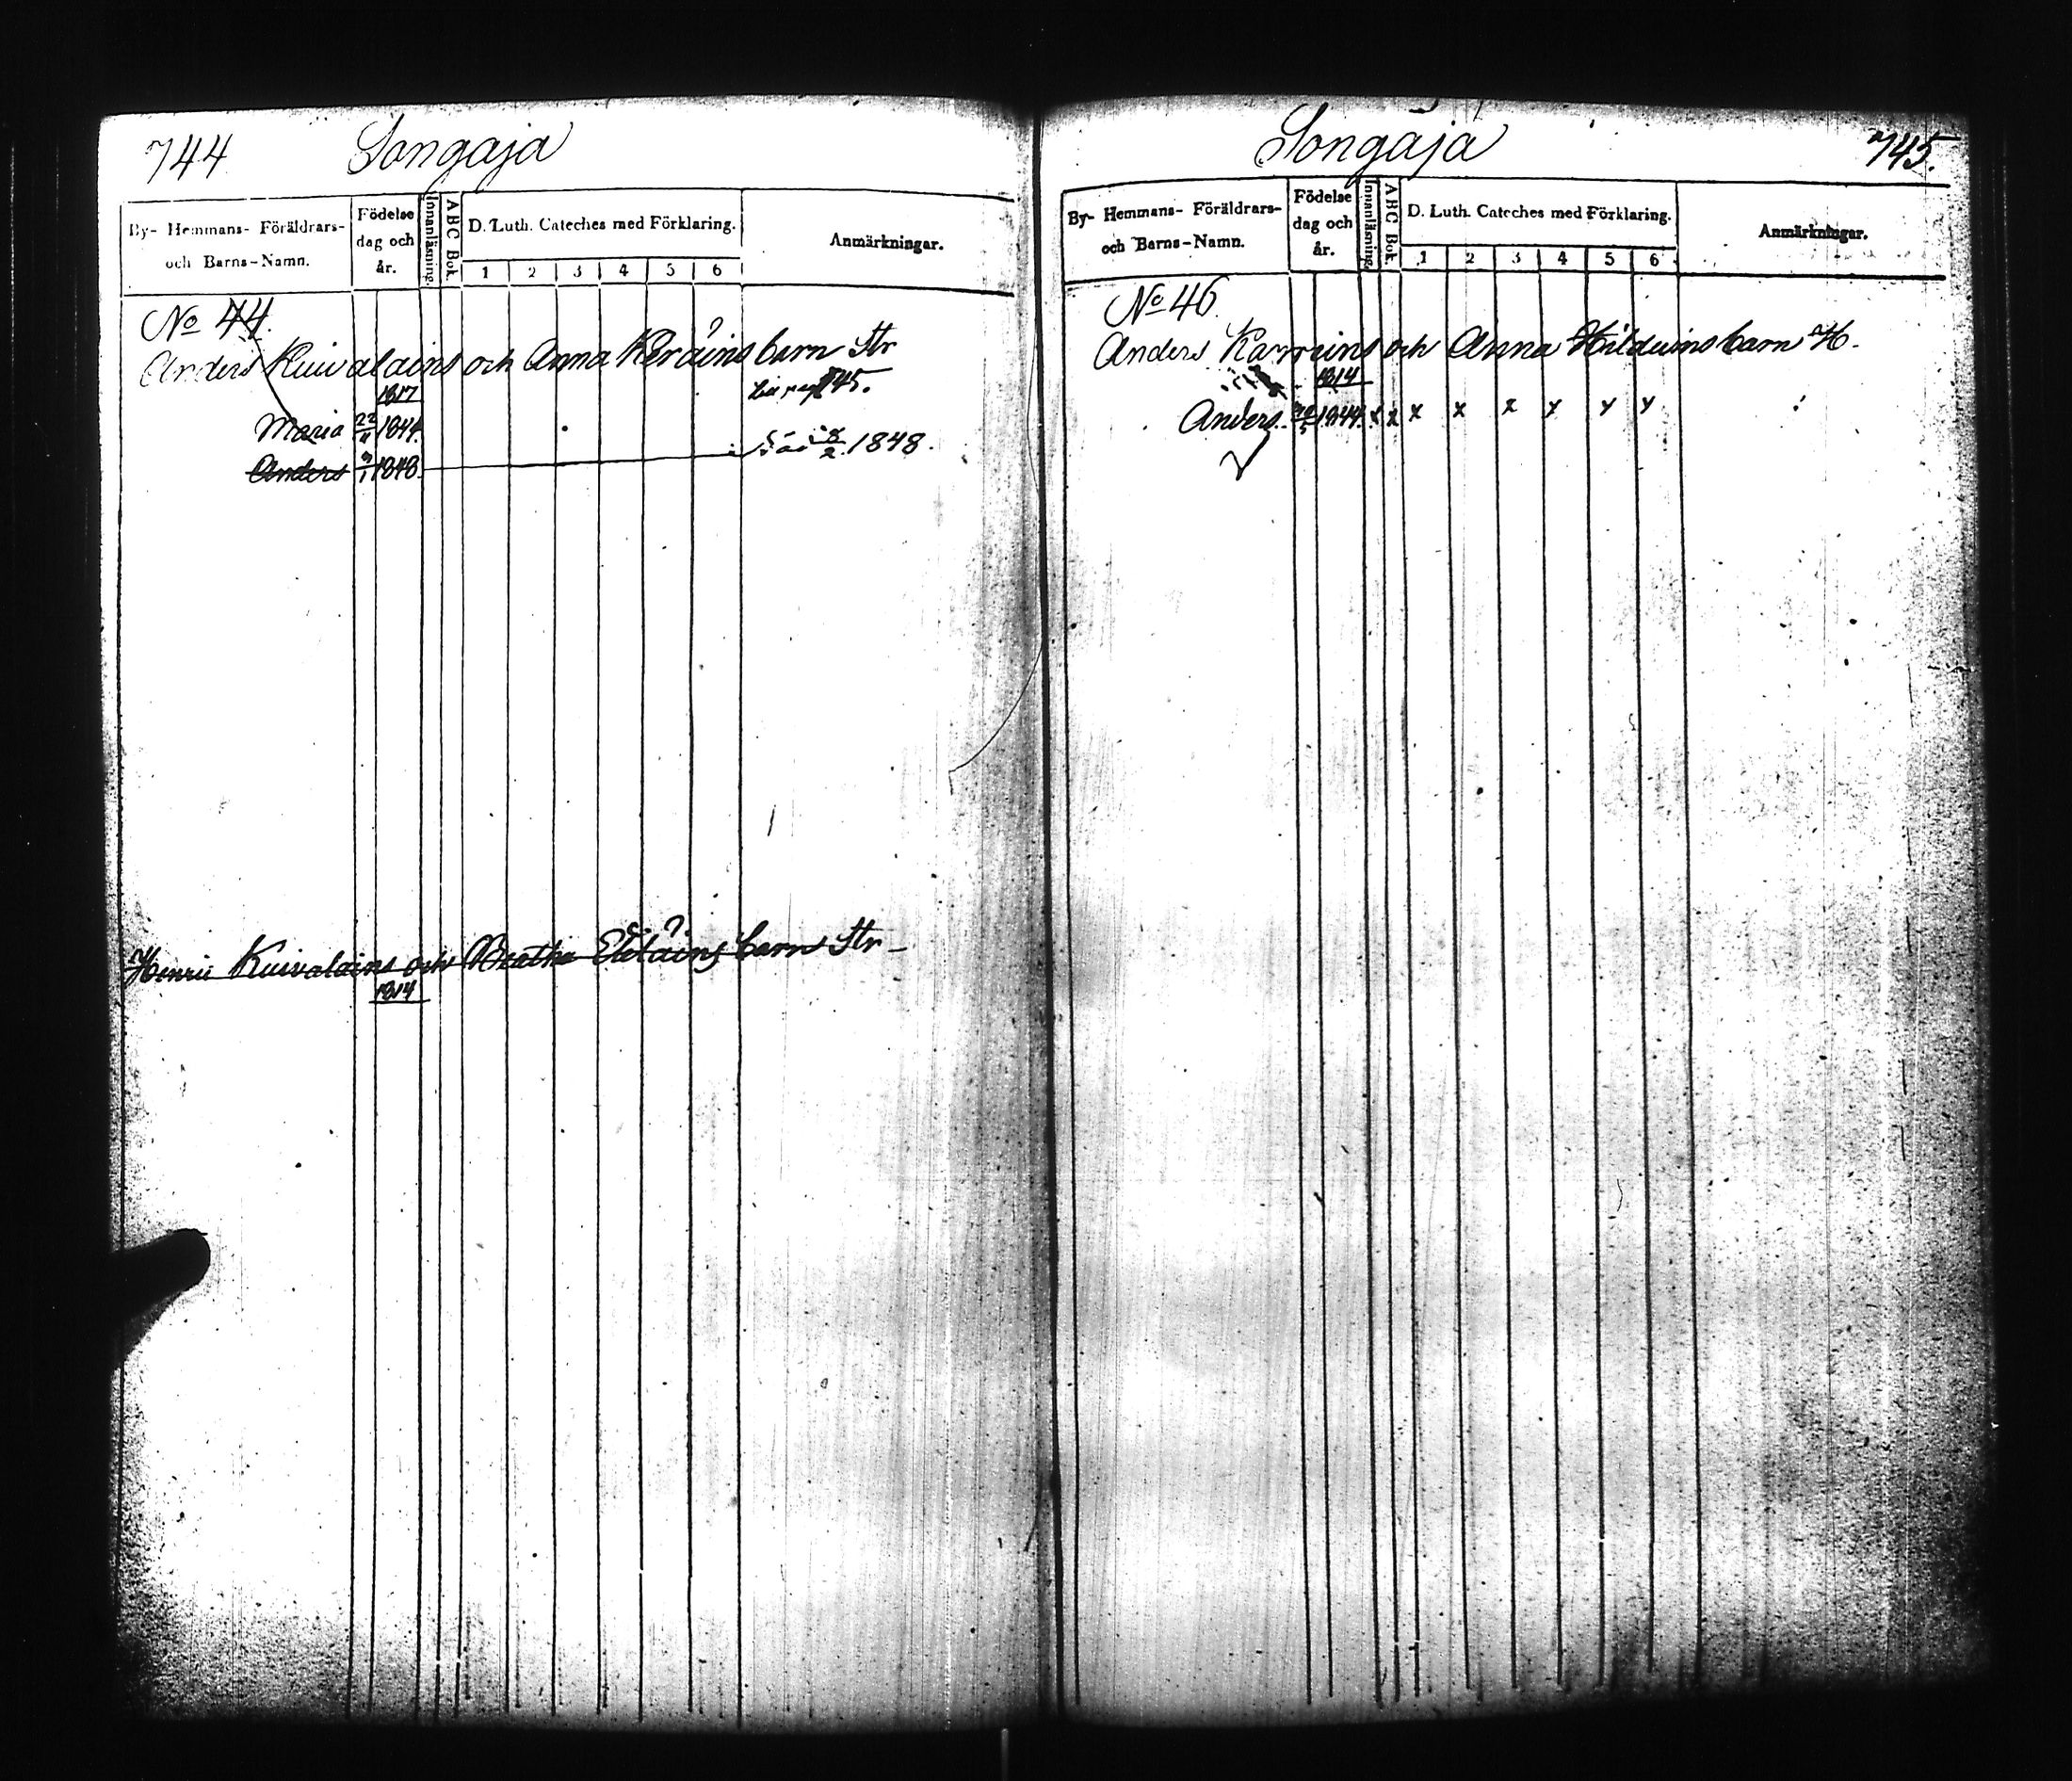 744 Songaja
By- Hemmans- Föräldrars- och Barns-Namn.
Födelse dag och år.
Innanläsning.
ABC Bok.
D. Luth. Cateches med Förklaring.
1 2 3 4 5 6
Anmärkningar.
No 44.
Anders Kuivalains och Anna Keräins barn Str
1817
745.
Maria 22/11 1844.
Anders 9/1 1848. 8/2 1848.
Henric Kuivalains och Beatha Eteläins barn Str
1814
Songaja 745.
By- Hemmans- Föräldrars- och Barns-Namn.
Födelse dag och år.
Innanläsning.
ABC Bok.
D. Luth. Cateches med Förklaring.
1 2 3 4 5 6
Anmärkningar.
No 46.
Anders Karvuins och Anna Hilduins barn H.
1814
Anders 1844. x x x x x x x x